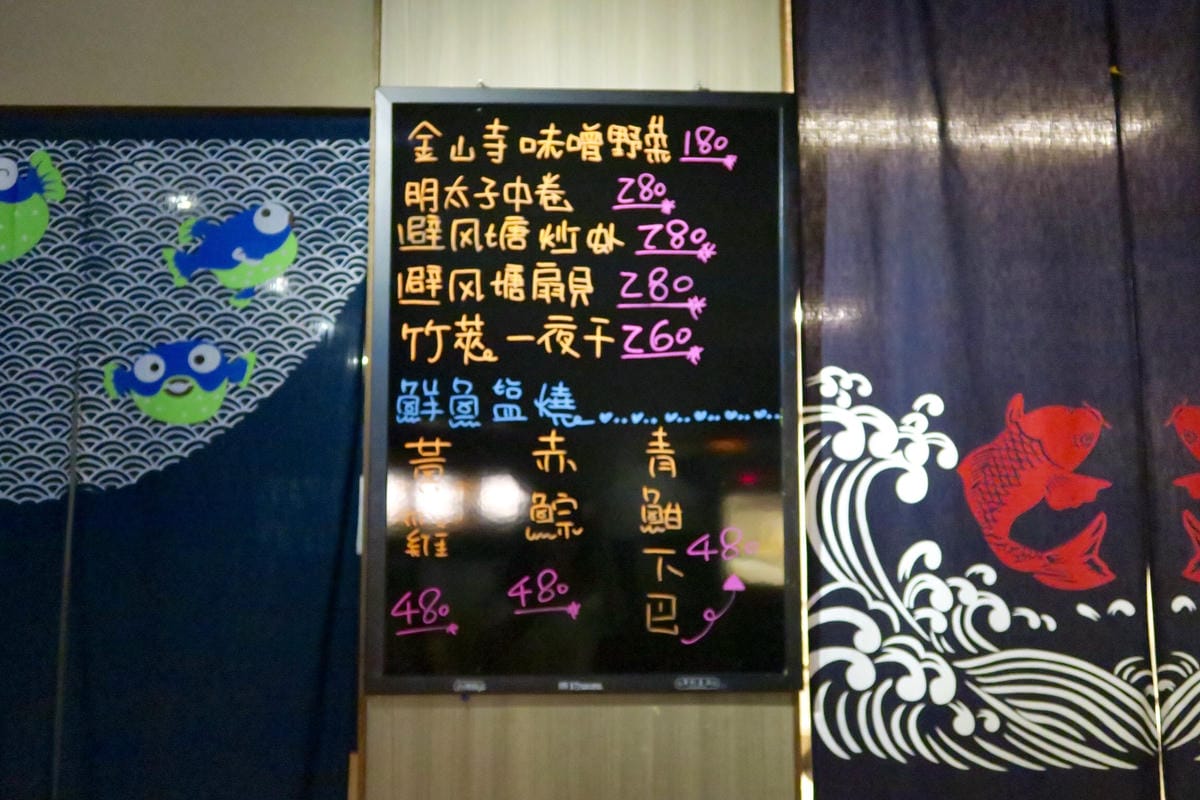 金山寺味噌野菜 180
明太子中卷 280
避风塘炒 280
避风塘扇貝 280
竹莢一夜干 260
鮮魚塩燒
黃雞 480
赤鯮 480
青魽下巴 480